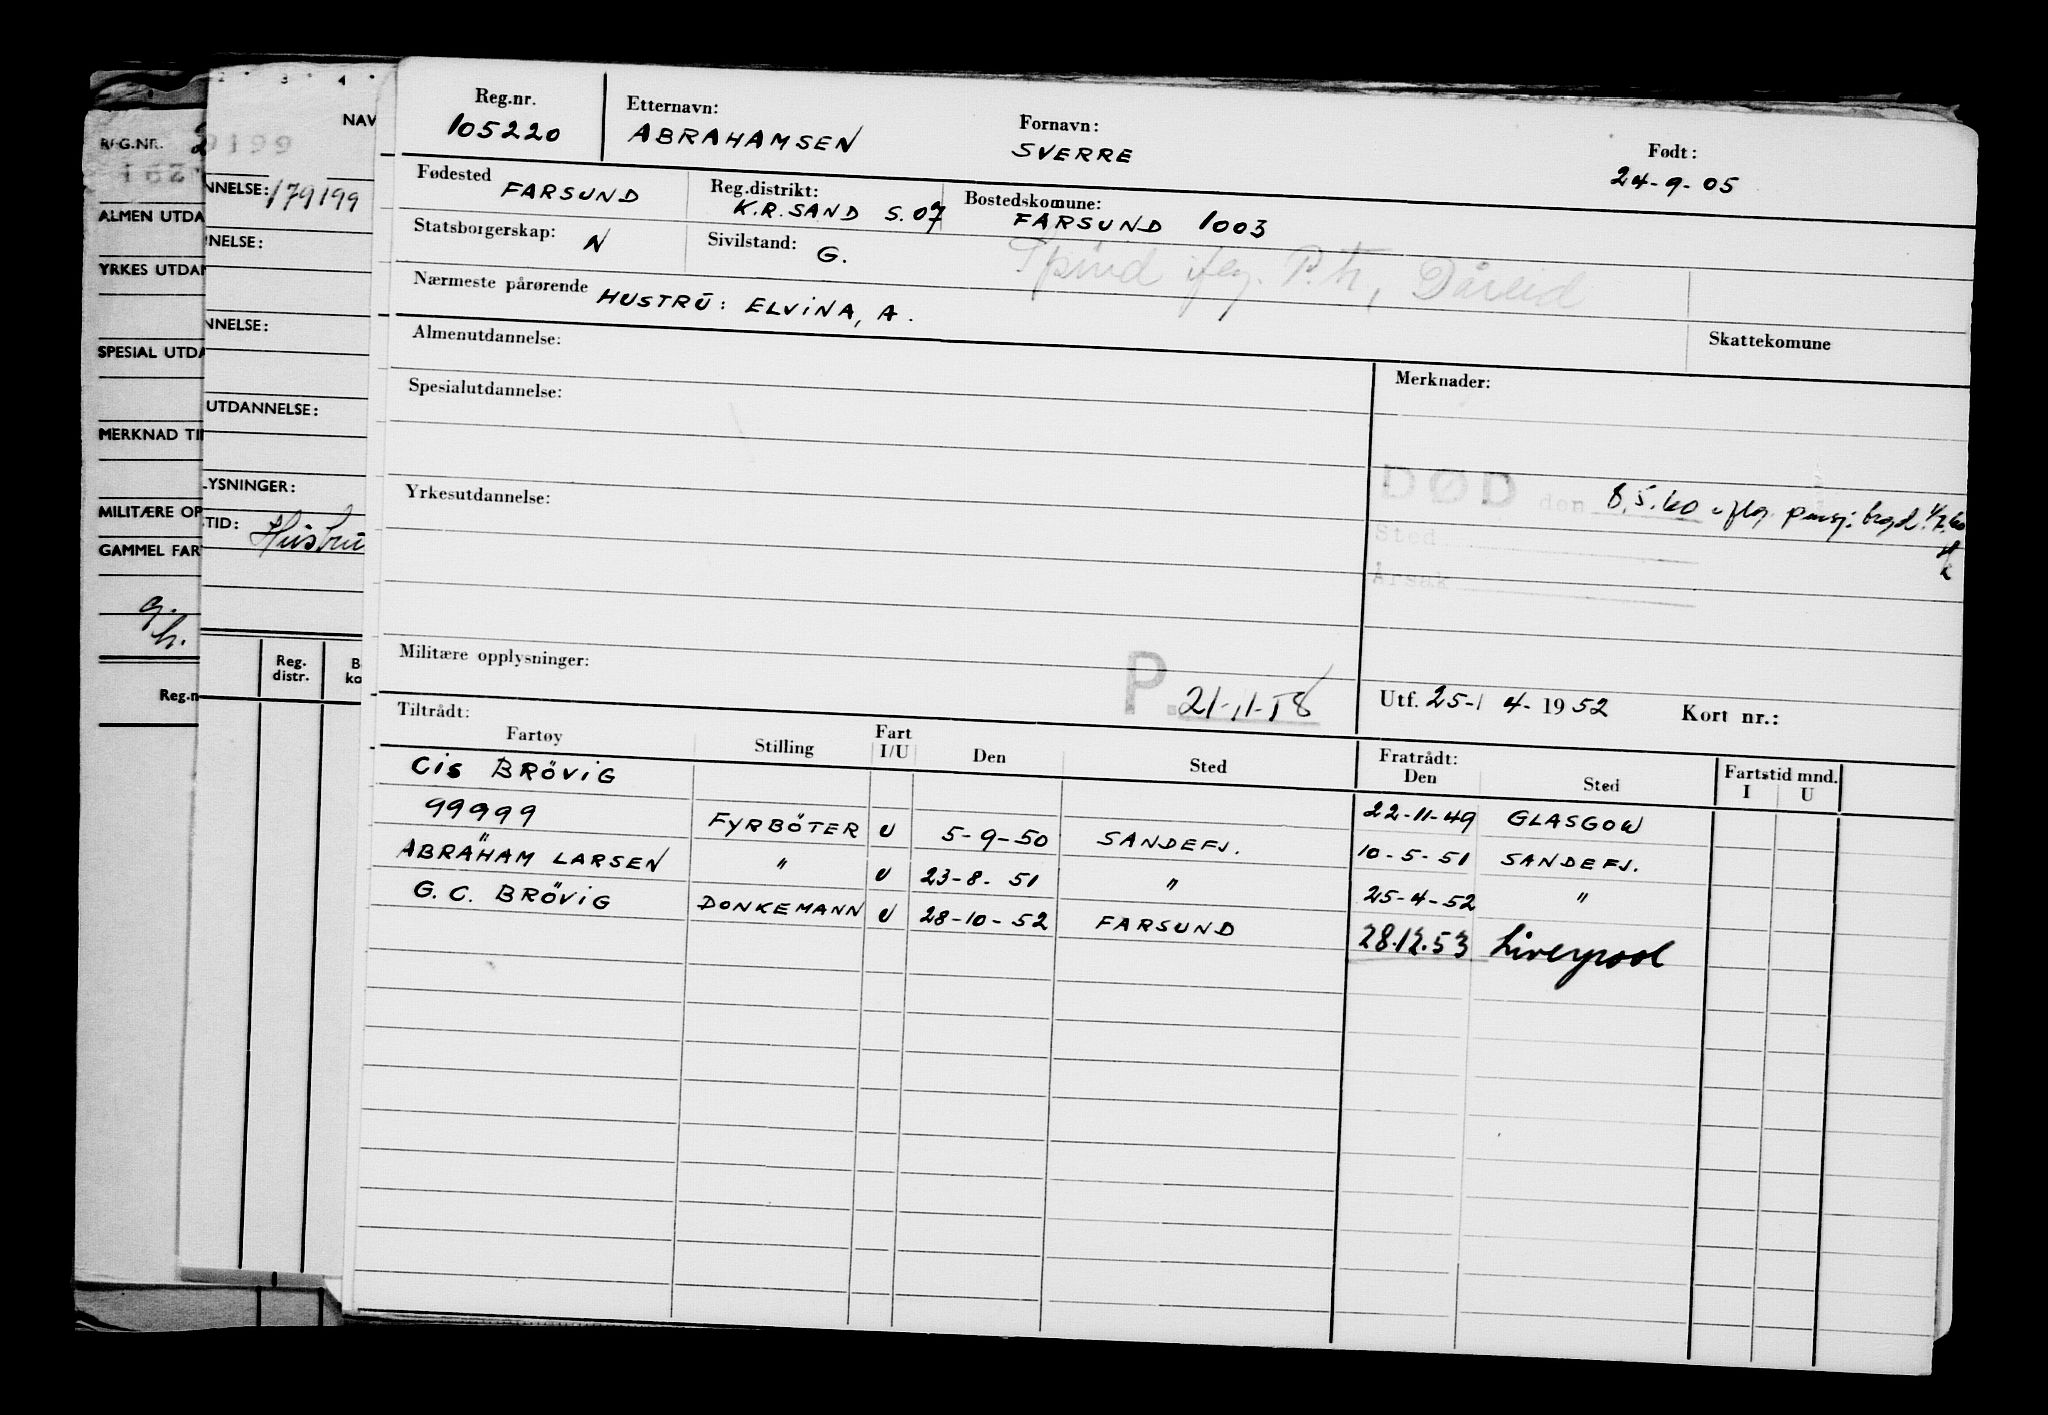 Reg.nr. Etternavn: Fornavn: Født:
105220 ABRAHAMSEN SVERRE 24-9-05
Fødested FARSUND Reg.distrikt: K.R.SAND S.07 Bostedskomune: FARSUND 1003
Statsborgerskap: N Sivilstand: G. Spind iflg. P.tr,
Nærmeste pårørende HUSTRU: ELVINA, A.
Skattekomune
Almenutdannelse:
Merknader:
Spesialutdannelse:
DØD den 8.5.60 iflg. pensj.
Sted
Årsak
Yrkesutdannelse:
Militære opplysninger:
P. 21-11-58
Utf. 25-4-1952 Kort nr.:
Tiltrådt: Fratrådt:
Fartøy Stilling Fart I/U Den Sted Den Sted Fartstid mnd. I U
CIS BRÖVIG 22-11-49 GLASGOW
99999 FYRBÖTER U 5-9-50 SANDEFJ. 10-5-51 SANDEFJ.
ABRAHAM LARSEN " U 23-8-51 " 25-4-52 "
G.C. BRÖVIG DONKEMANN U 28-10-52 FARSUND 28.12.53 Liverpool
2 3 4
NAV
9199
NNELSE: 179199
NELSE:
NNELSE:
UTDANNELSE:
LYSNINGER:
TID: Hustru
Reg. distr.
B
ko
REG.NR. 2
ALMEN UTDA
YRKES UTDAN
SPESIAL UTDA
MERKNAD TI
MILITÆRE OP
GAMMEL FAR
Reg.n